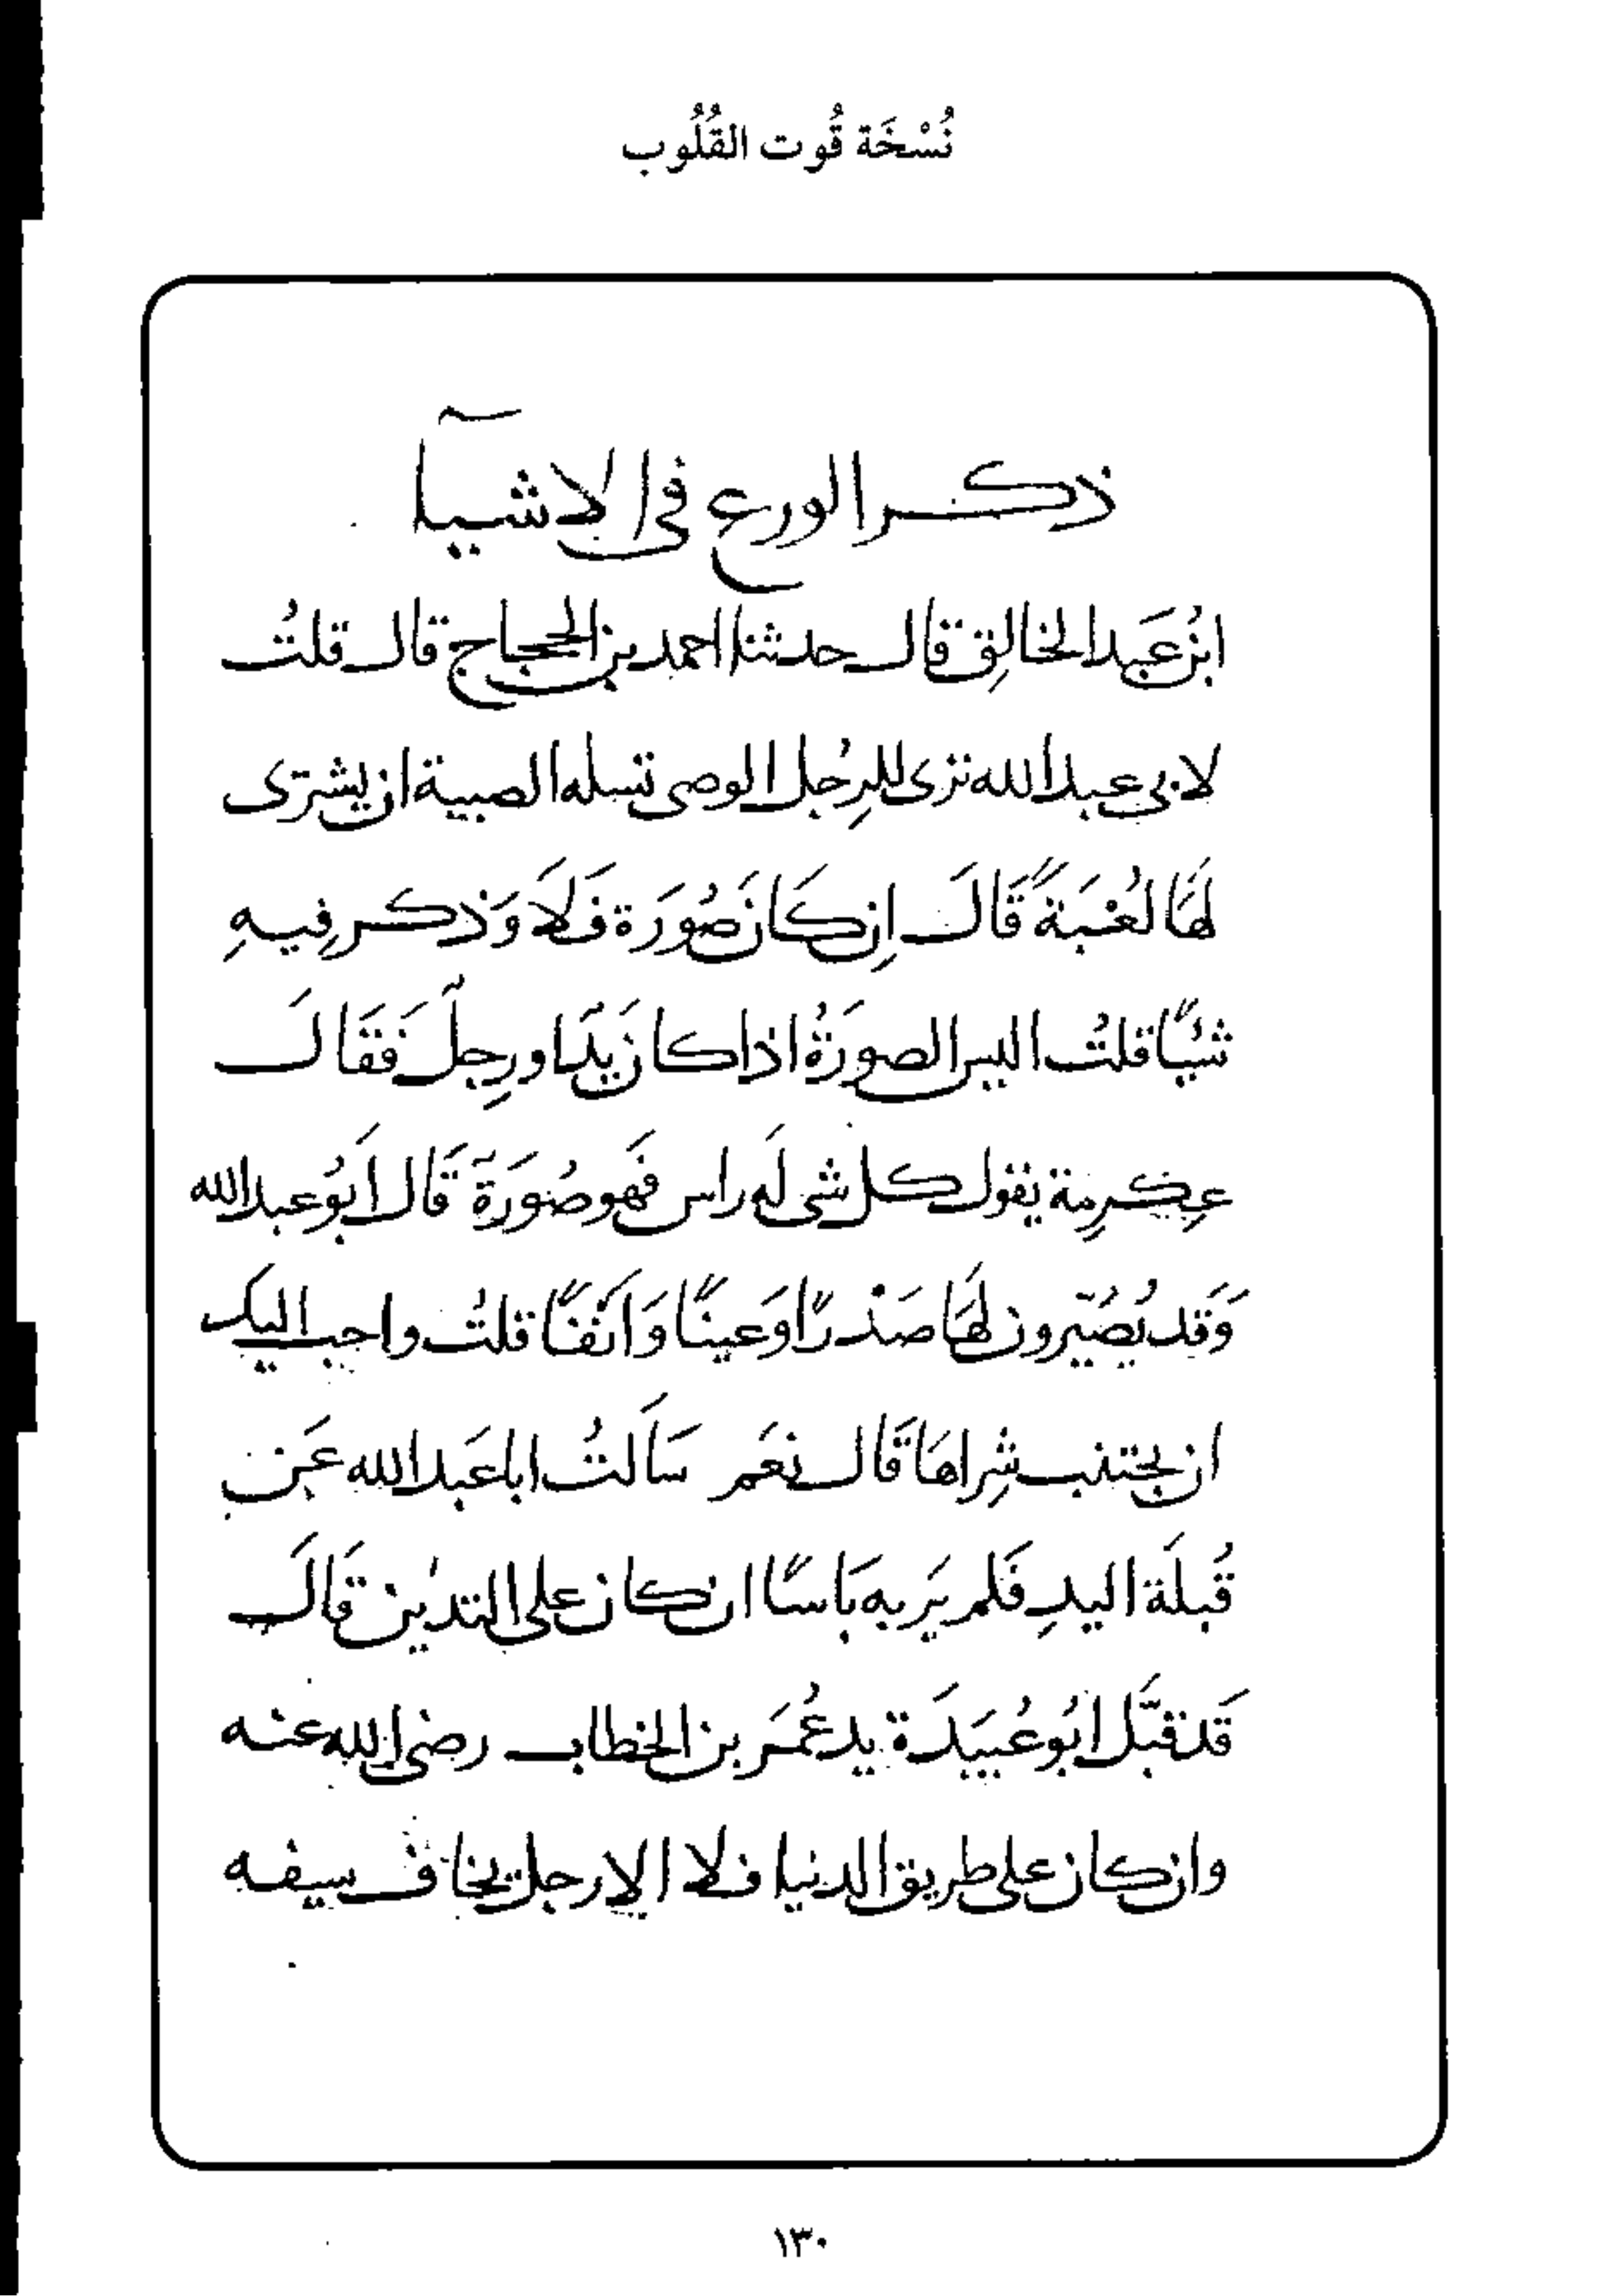 نُسْخَة قُوت القُلُوب
ذكر الورع في الاشيآ
ابنُ عَبد الخالِق قال حدثنا احمد بن الحجاج قال قلتُ
لابي عبد الله ترى للرِجُل الوصى تسله الصبية ان يشترى
لهَا لعُبَةً قَالَ اِن كَانَ صُورَة فَلاَ وَذكر فِيهِ
شيًا قلتُ اليس الصورَةُ اذا كان يَدًا ورِجلٌ فَقَالَ
عِكرِمة يقول كل شى لَه راس فَهو صُورَة قَال اَبُو عبد الله
وَقد يُصَيّرون لهَا صَدْرًا وَعينًا وَاَنْفًا قلتُ واحب اليكَ
ان يجتنب شِراهَا قَال نعَم سَاَلتُ ابا عَبد الله عَن
قُبلَة اليدِ فَلم يَر به بَاسًا ان كان على التدين قَالَ
قَد قبَّل ابُو عُبَيدَة يد عُمَر بن الخطاب رضى الله عنه
وان كان على طريق الدنيا فلا الا رجل يخاف سيفه
١٣٠